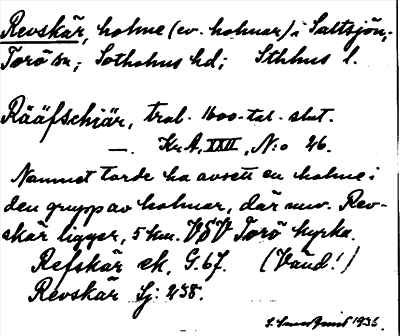 Revskär, holme (ev. holmar) i Saltsjön,
Torö sn; Sotholms hd; Sthlms l.
Rääfschiär, trol. 1600-tal. slut.
—. KrA, XXII, N:o 26.
Namnet torde ha avsett en holme i
den grupp av holmar, där nuv. Rev-
skär ligger, 5 km. VSV Torö kyrka.
Refskär ek, G. 67. (Vänd!)
Revskär Sj: 238.
1936